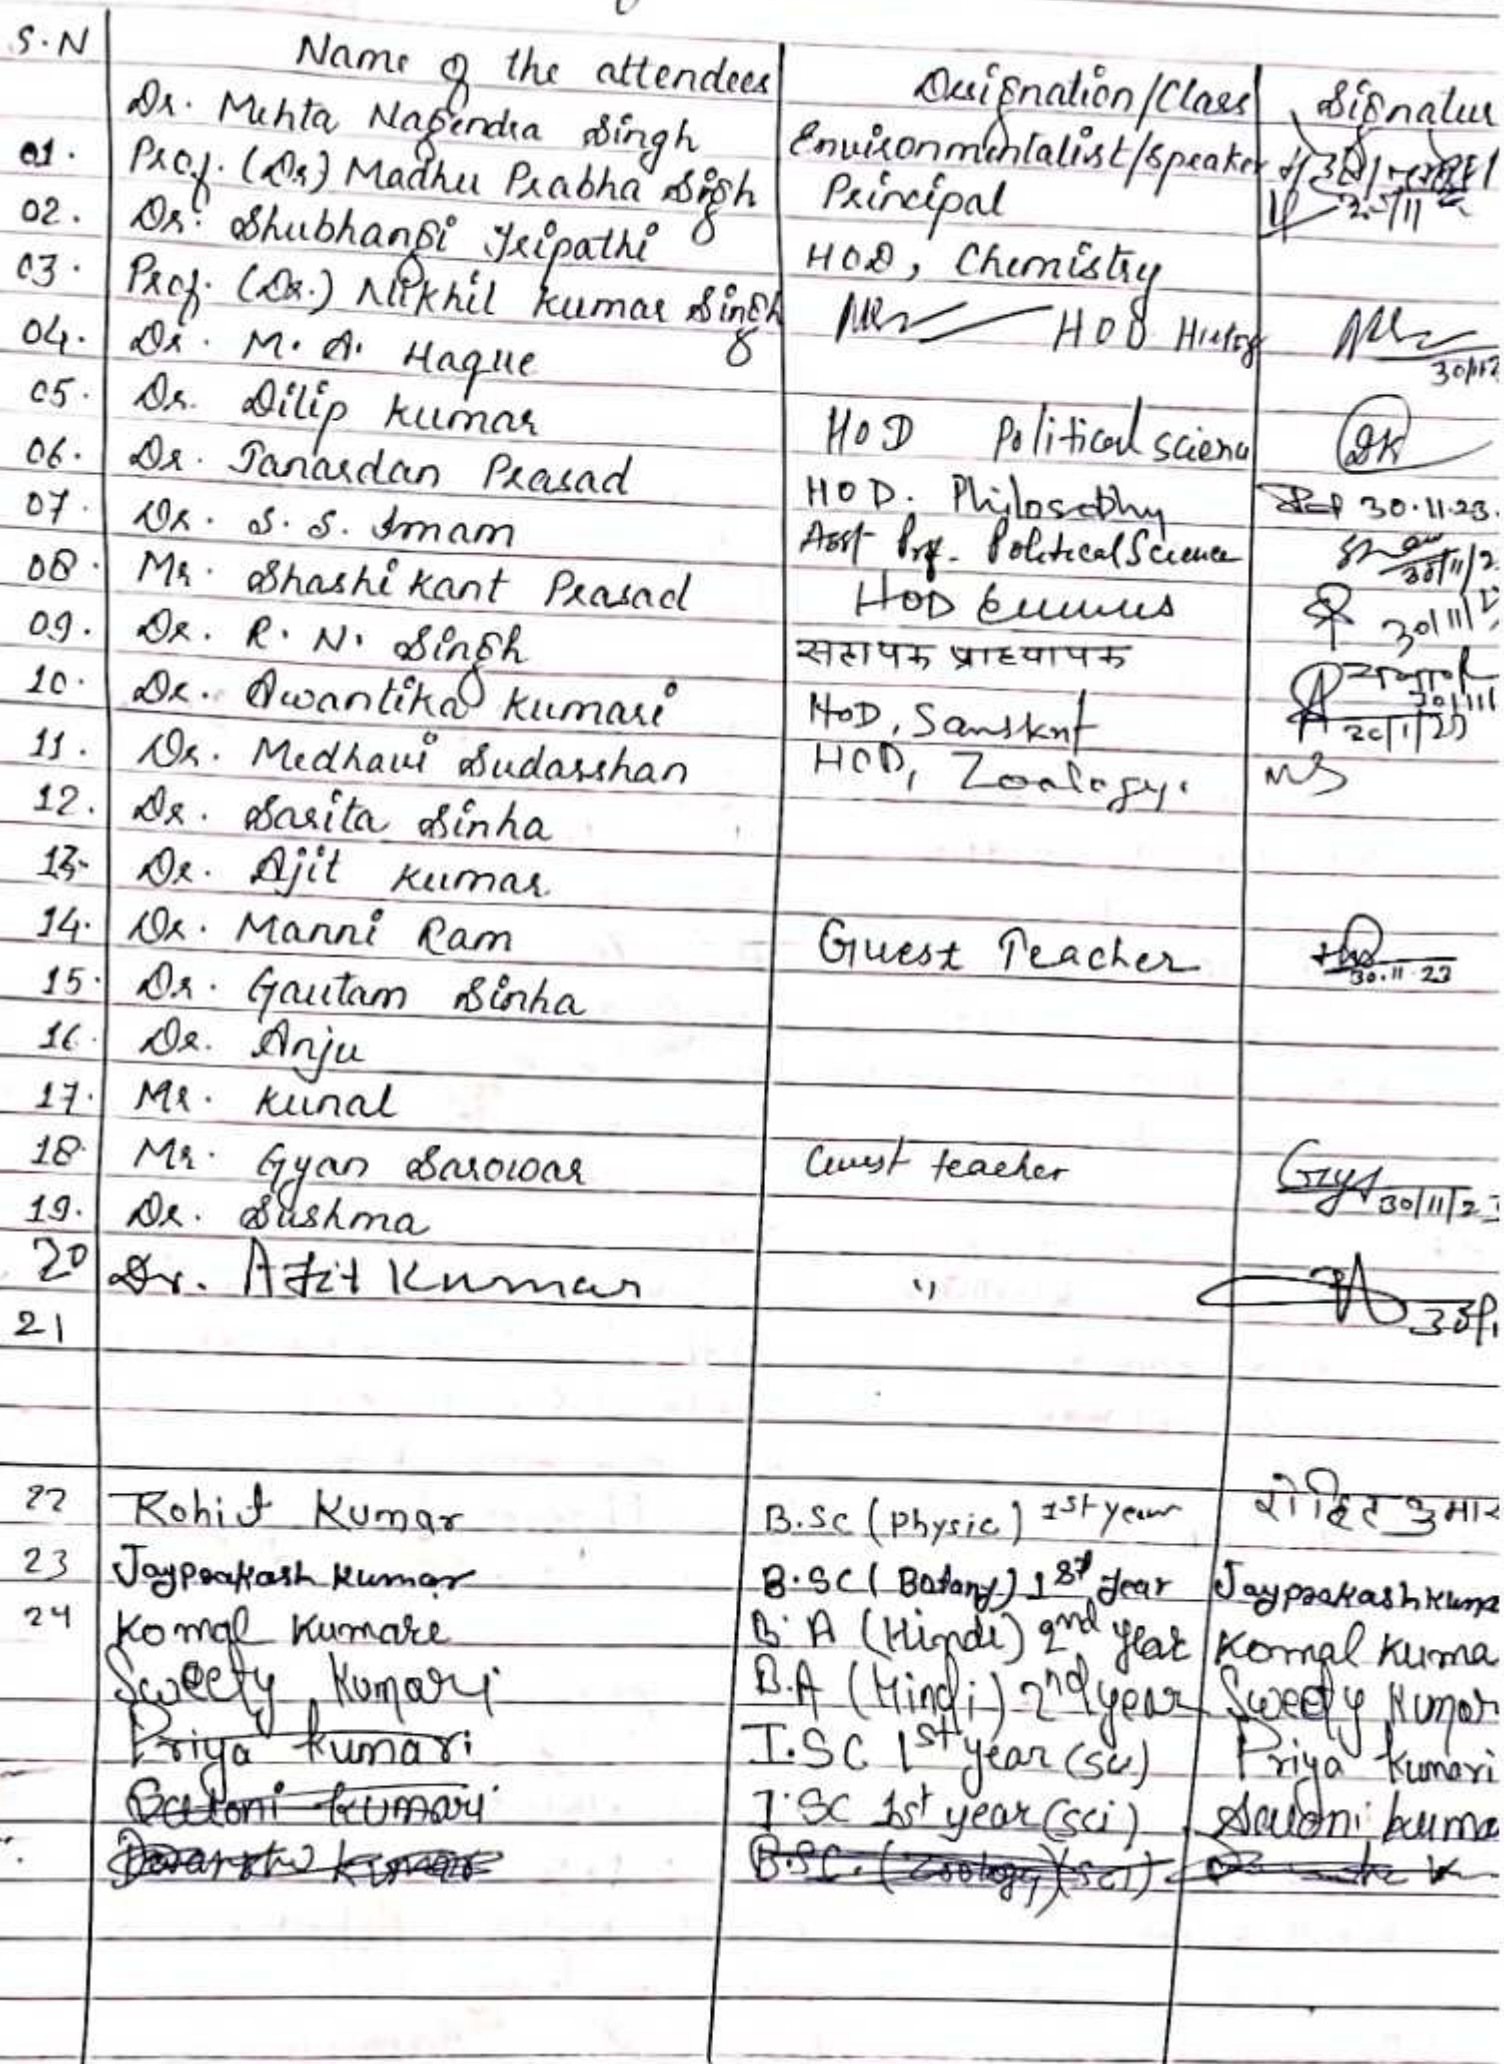 S.N Name of the attendees Designation/Class Signatur
Dr. Mehta Nagendra Singh Environmentalist/Speaker
01. Prof. (Dr) Madhu Prabha Singh Principal
02. Dr. Shubhangi Tripathi HOD, Chemistry
03. Prof. (Dr.) Nikhil Kumar Singh HOD History
04. Dr. M. A. Haque
05. Dr. Dilip Kumar HOD Political Science DK
06. Dr. Janardan Prasad HOD. Philosophy 30.11.23.
07. Dr. S. S. Imam Asst Prof. Political Science
08. Mr. Shashi Kant Prasad HOD
09. Dr. R. N. Singh सहायक प्राध्यापक
10. Dr. Awantika Kumari HOD, Sanskrit
11. Dr. Medhavi Sudarshan HOD, Zoology. MS
12. Dr. Sarita Sinha
13. Dr. Ajit Kumar
14. Dr. Manni Ram Guest Teacher 30.11.23
15. Dr. Gautam Sinha
16. Dr. Anju
17. Mr. Kunal
18. Mr. Gyan Sarowar Guest teacher 30/11/23
19. Dr. Sushma
20 Dr. Ajit Kumar "
21
22 Rohit Kumar B.Sc (Physic) 1st year रोहित कुमार
23 Jayprakash Kumar B.SC (Botany) 1st year Jayprakash Kuma
24 Komal Kumari B.A (Hindi) 2nd year Komal Kuma
Sweety Kumari B.A (Hindi) 2nd year Sweety Kumar
Priya Kumari I.SC 1st year (sc) Priya Kumari
Saloni Kumari I.SC 1st year (sci) Saloni kuma
B.SC. (Zoology) (sci)